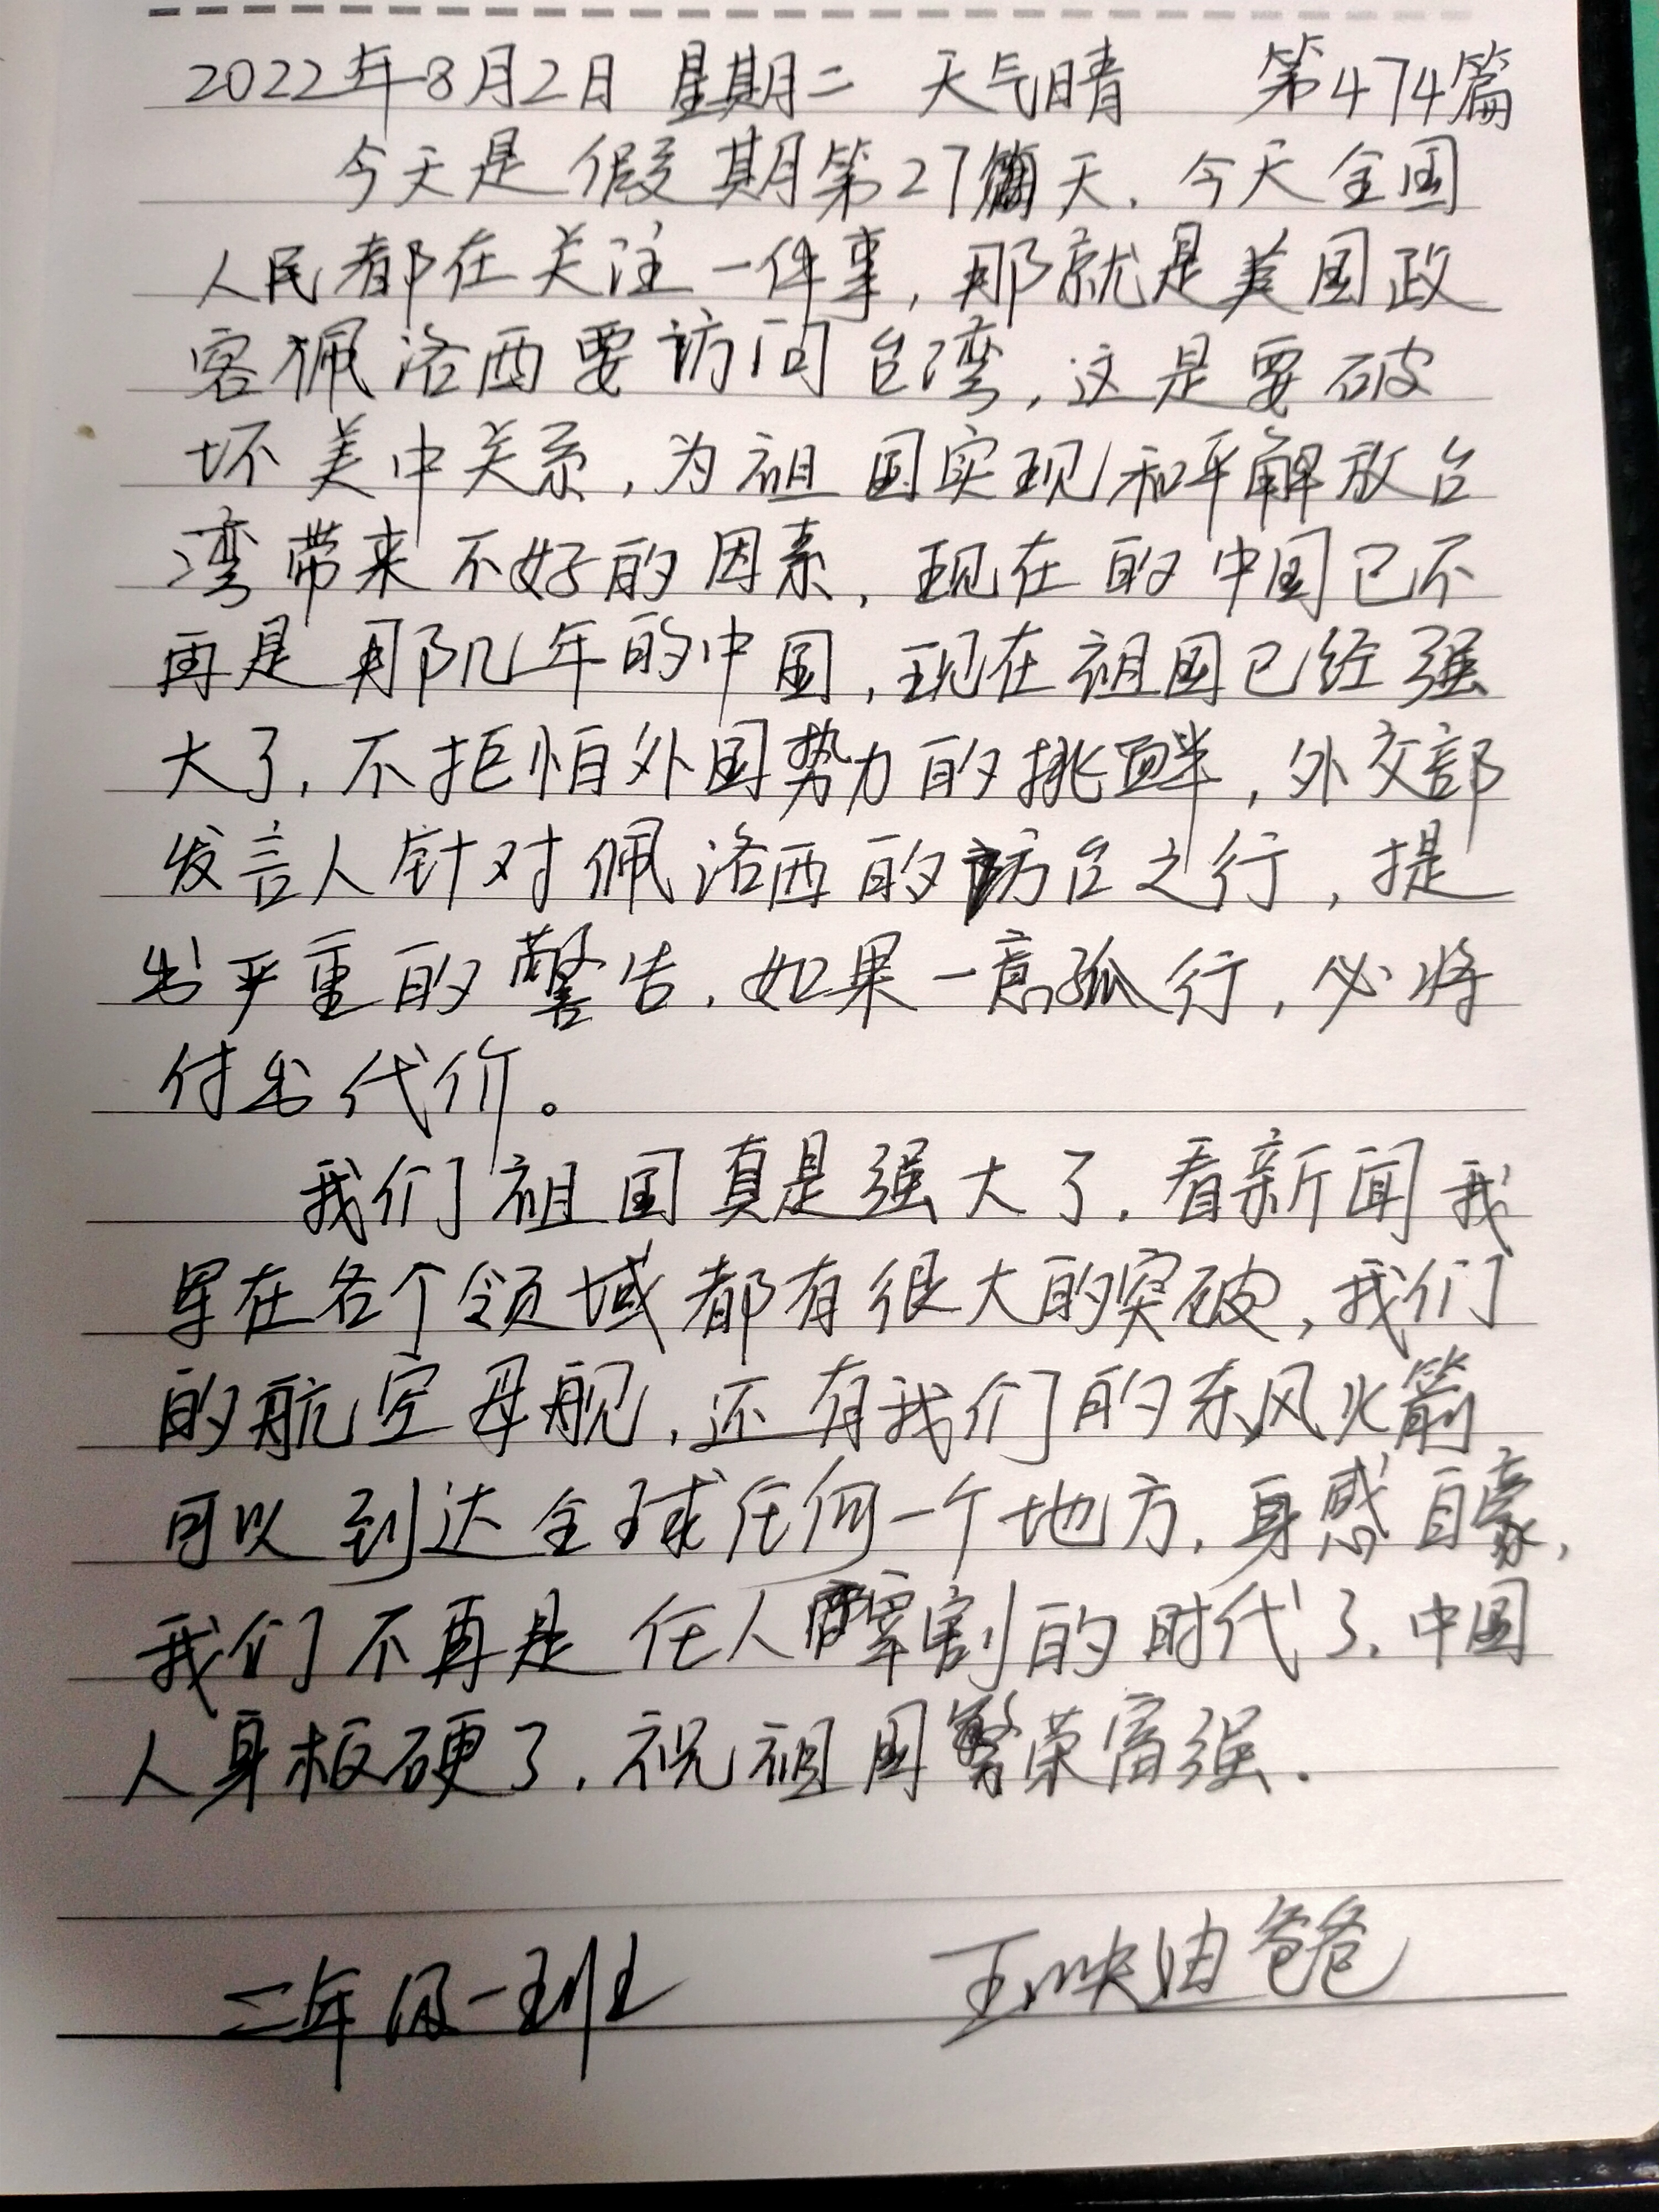 2022年8月2日 星期二 天气晴 第474篇
今天是假期第27天.今天全国
人民都在关注一件事,那就是美国政
客佩洛西要访问台湾,这是要破
坏美中关系,为祖国实现和平解放台
湾带来不好的因素,现在的中国已不
再是那几年的中国,现在祖国已经强
大了,不拒怕外国势力的挑衅,外交部
发言人针对佩洛西的访台之行,提
出严重的警告.如果一意孤行,必将
付出代价。
我们祖国真是强大了.看新闻我
军在各个领域都有很大的突破,我们
的航空母舰,还有我们的东风火箭
可以到达全球任何一个地方.身感自豪,
我们不再是任人宰割的时代了.中国
人身板硬了.祝祖国繁荣富强.
二年级一班 王映迪爸爸